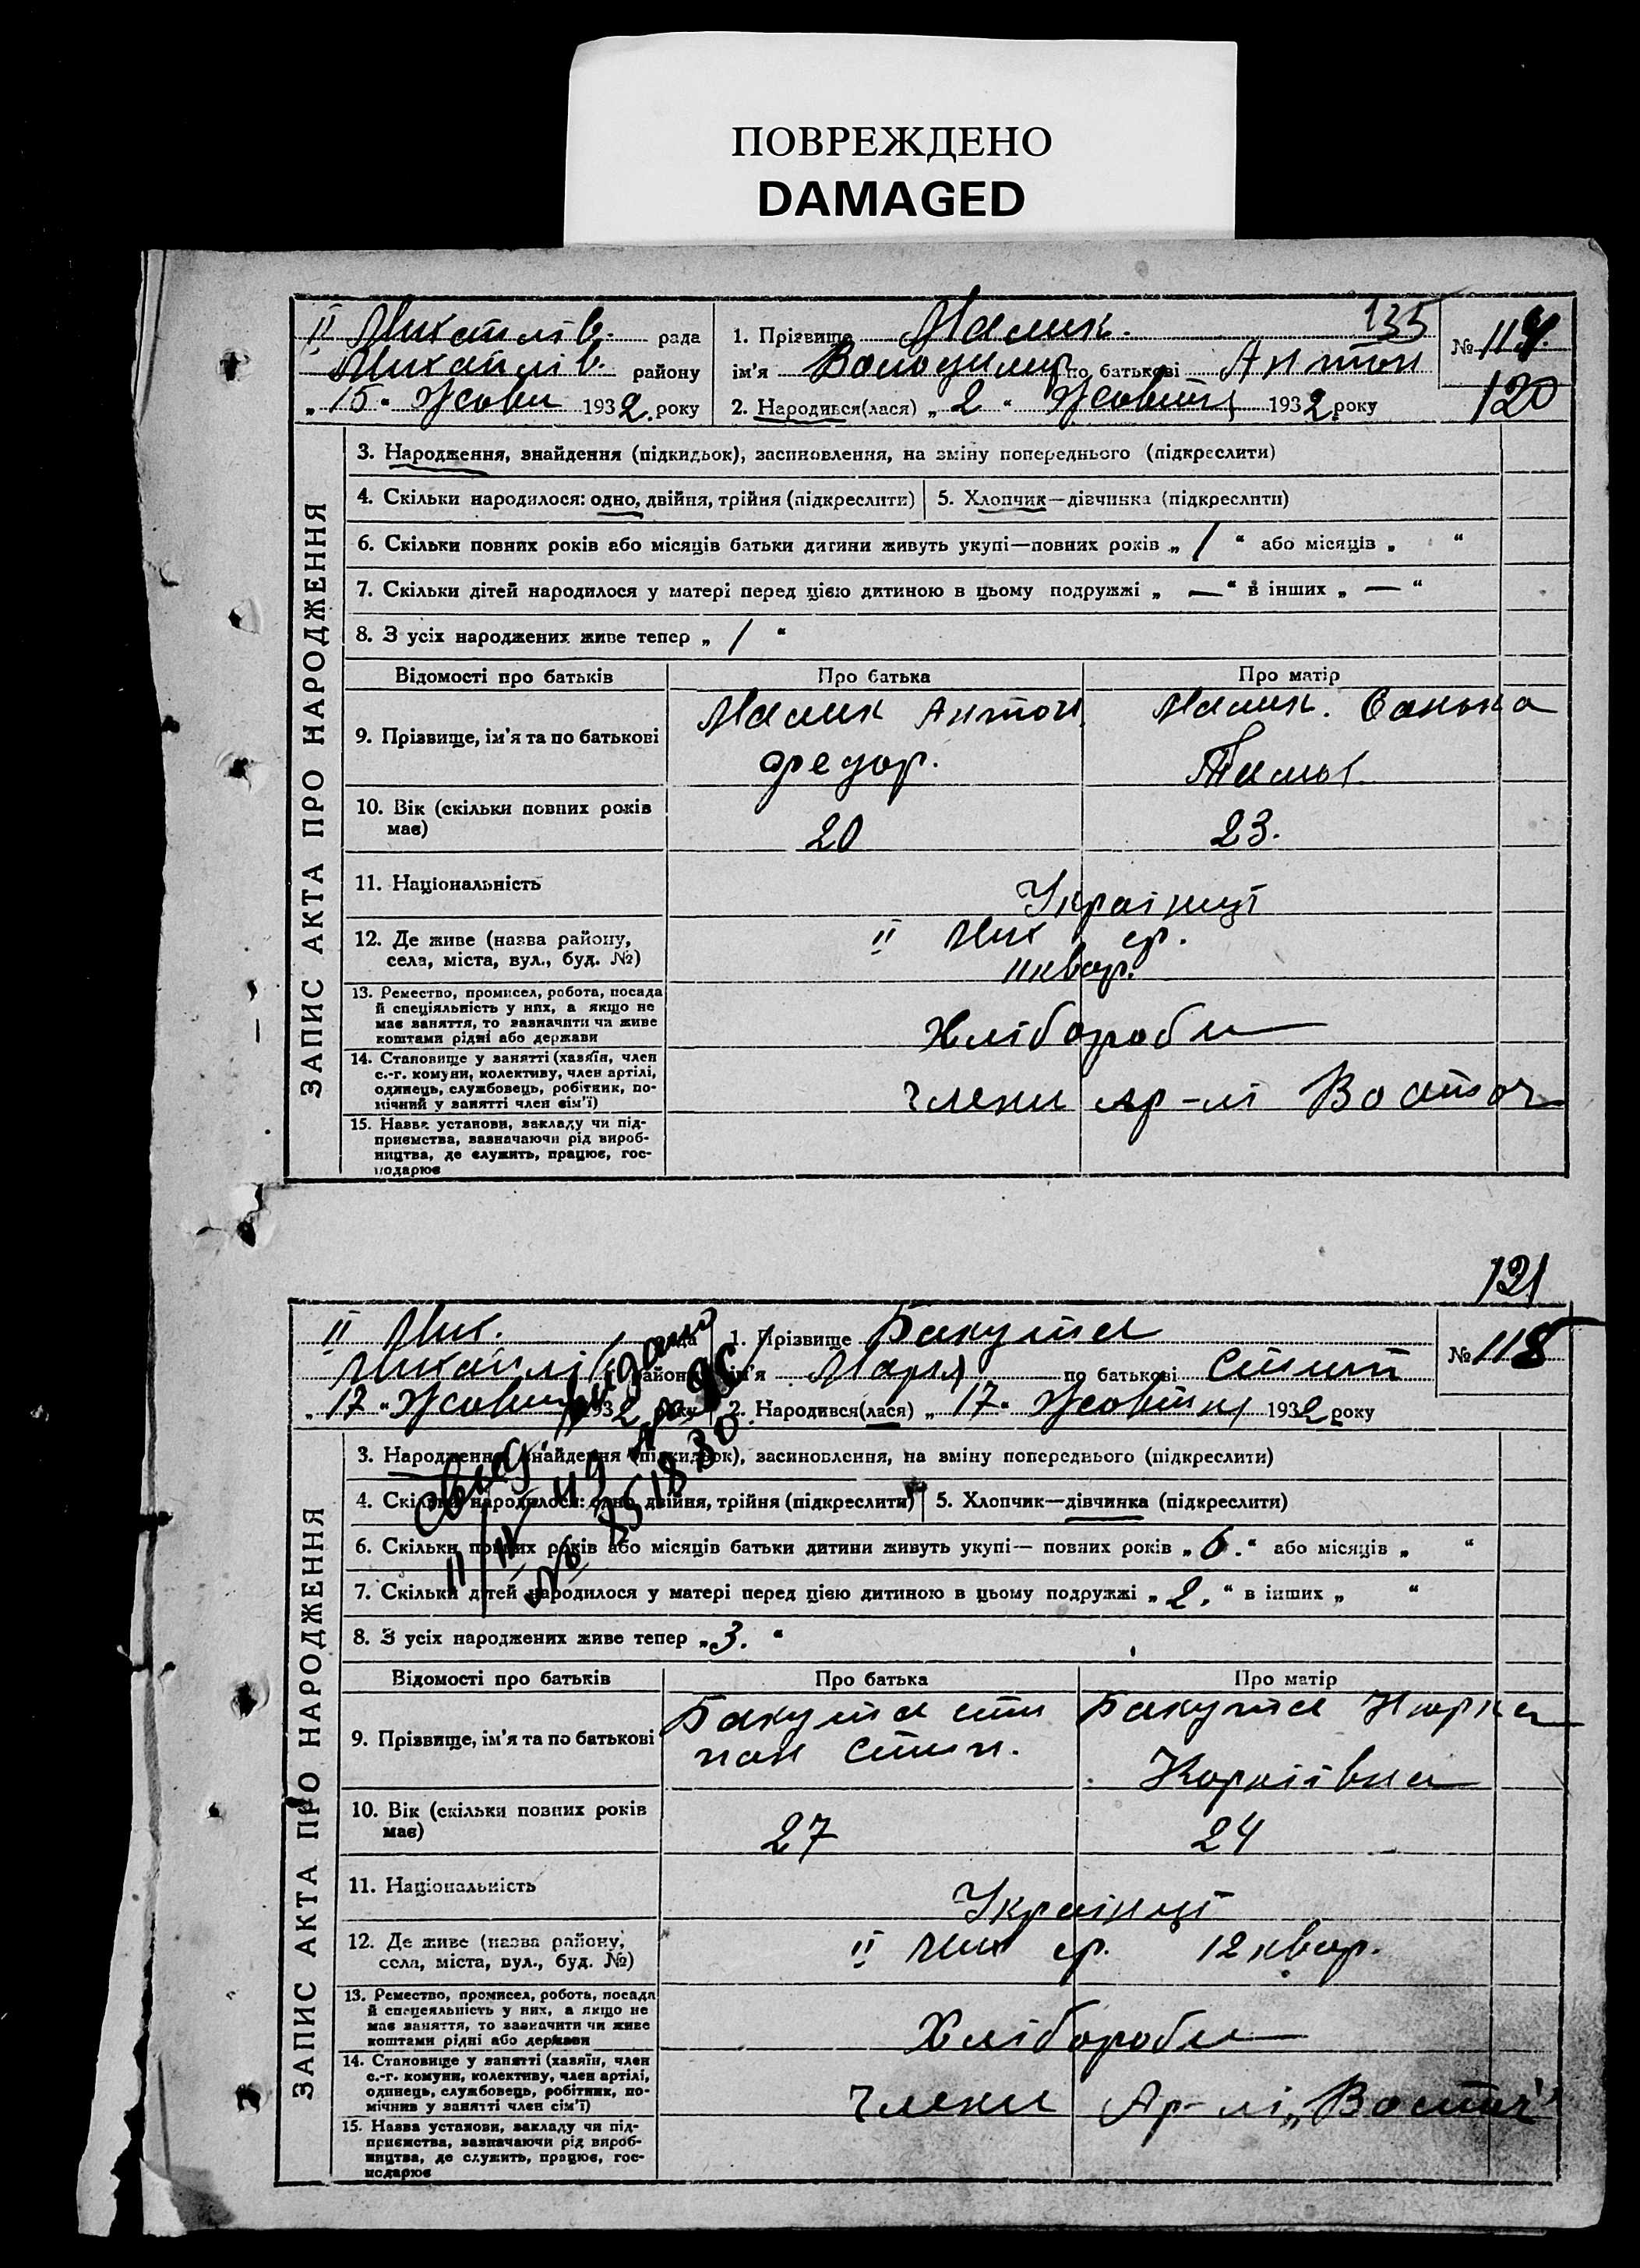 ПОВРЕЖДЕНО
DAMAGED
135
II Михайлів. рада
1. Прізвище Малик.
№ 117.
Михайлів. району
ім'я Володимир по батькові Антон
120
„ 15 " Жовт 1932 року
2. Народився(лася) „ 2 " Жовтня 1932 року
ЗАПИС АКТА ПРО НАРОДЖЕННЯ
3. Народження, знайдення (підкидьок), засиновлення, на зміну попереднього (підкреслити)
4. Скільки народилося: одно, двійня, трійня (підкреслити)
5. Хлопчик—дівчинка (підкреслити)
6. Скільки повних років або місяців батьки дитини живуть укупі—повних років „ 1 " або місяців „ "
7. Скільки дітей народилося у матері перед цією дитиною в цьому подружжі „ — " в інших „ — "
8. З усіх народжених живе тепер „ 1 "
Відомості про батьків
Про батька
Про матір
9. Прізвище, ім'я та по батькові
Малик Антон
Федор.
Малик. Санька
10. Вік (скільки повних років має)
20
23.
11. Національність
Українці
12. Де живе (назва району, села, міста, вул., буд. №)
II Мих ср.
11 квар.
13. Ремество, промисел, робота, посада
й спеціяльність у них, а якщо не
має заняття, то зазначити чи живе
коштами рідні або держави
Хлібороби
14. Становище у занятті (хазяїн, член
с.-г. комуни, колективу, член артілі,
одинець, службовець, робітник, по-
мічний у занятті член сім'ї)
Члени ар-лі Восток
15. Назва установи, закладу чи під-
приємства, зазначаючи рід вироб-
ництва, де служить, працює, гос-
подарює
121
II Мих. рада
1. Прізвище Бакума
№ 118
Михайлів району
ім'я Марія по батькові Степ
„ 17 " Жовтня 1932 року
2. Народився(лася) „ 17 " Жовтня 1932 року
ЗАПИС АКТА ПРО НАРОДЖЕННЯ
3. Народження, знайдення (підкидьок), засиновлення, на зміну попереднього (підкреслити)
4. Скільки народилося: одно, двійня, трійня (підкреслити)
5. Хлопчик—дівчинка (підкреслити)
6. Скільки повних років або місяців батьки дитини живуть укупі— повних років „ 6. " або місяців „ "
7. Скільки дітей народилося у матері перед цією дитиною в цьому подружжі „ 2. " в інших „ "
8. З усіх народжених живе тепер „ 3. "
Відомості про батьків
Про батька
Про матір
9. Прізвище, ім'я та по батькові
Бакума Сти
пан Степ.
Бакума Нюрка
10. Вік (скільки повних років має)
27
24
11. Національність
Українці
12. Де живе (назва району, села, міста, вул., буд. №)
II Мих ср. 12 квар.
13. Ремество, промисел, робота, посада
й спецеяльність у них, а якщо не
має заняття, то зазначити чи живе
коштами рідні або держави
Хлібороби
14. Становище у занятті (хазяїн, член
с.-г. комуни, колективу, член артілі,
одинець, службовець, робітник, по-
мічнив у занятті член сім'ї)
Члени Ар-лі „Восток"
15. Назва установи, закладу чи під-
приємства, зазначаючи рід вироб-
ництва, де служить, працює, гос-
подарює